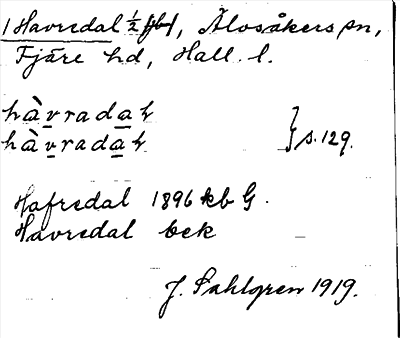 1 Havredal 1/2 , Älvsåkers sn,
Fjäre hd, Hall. l.
hàvradaɫ
hàvradaɫ } s. 129.
Hafredal 1896 kb G.
Havredal bek
J. Sahlgren 1919.